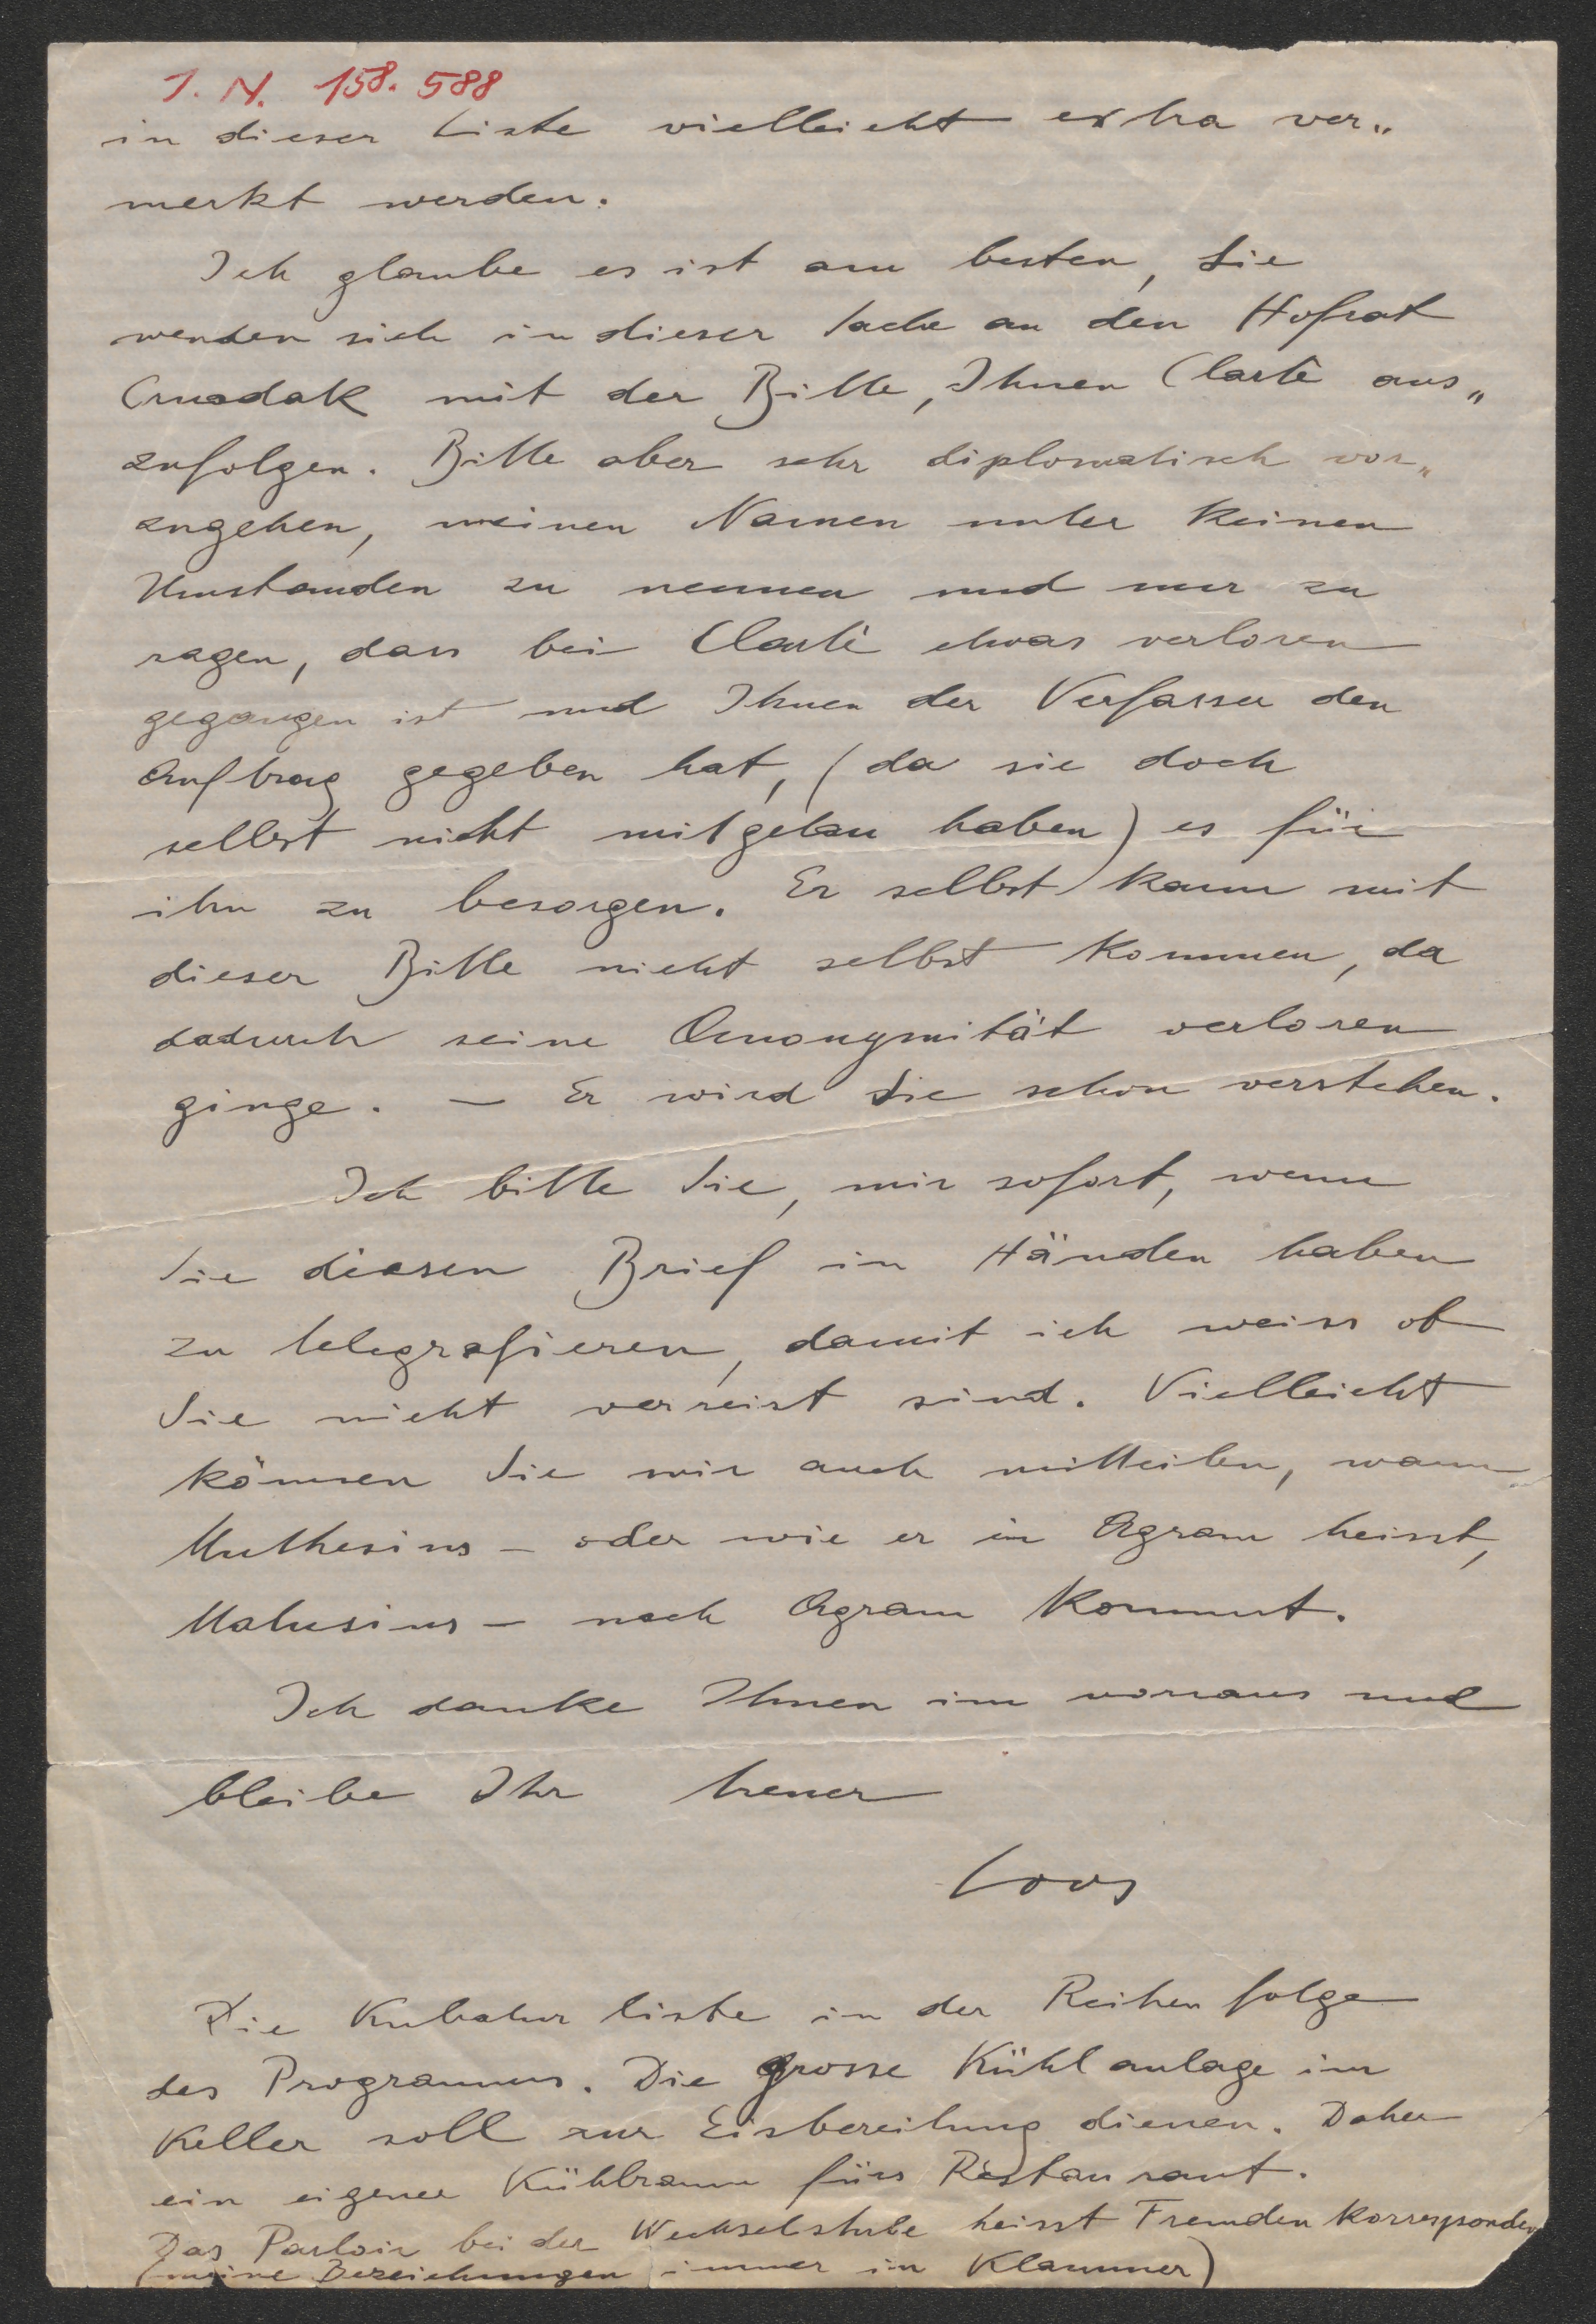 I. N. 158.588
in dieser Liste vielleicht extra ver„
merkt werden.
Ich glaube es ist am besten, Sie
wenden sich in dieser Sache an den Hofrat
mit der Bitte, Ihnen Clarté aus„
zufolgen. Bitte aber sehr diplomatisch vor„
zugehen, meinen Namen unter keinen
Umstanden zu nennen und nur zu
sagen, dass bei Clarté etwas verloren
gegangen ist und Ihnen der Verfasser den
Auftrag gegeben hat, (da sie doch
selbst nicht mitgetan haben) es für
ihn zu besorgen. Er selbst kann mit
dieser Bitte nicht selbst kommen, da
dadurch seine Anonymität verloren
ginge. — Er wird Sie schon verstehen.
Ich bitte Sie, mir sofort, wenn
Sie diesen Brief in Händen haben
zu telegrafieren, damit ich weiss ob
Sie nicht verreist sind. Vielleicht
können Sie mir auch mitteilen, wann
Muthesius – oder wie er in Agram heisst,
Matusius – nach Agram kommt.
Ich danke Ihnen im vorraus und
bleibe Ihr treuer
Loos
Die Kubatur liste in der Reihenfolge
des Programms. Die grosse Kühlanlage im
Keller soll zur Eisbereitung dienen. Daher
ein eigener Kühlraum fürs Restaurant.
Das Parloir bei der Wechselstube heisst Fremden Korresponden
(meine Bezeichnungen immer in Klammer)